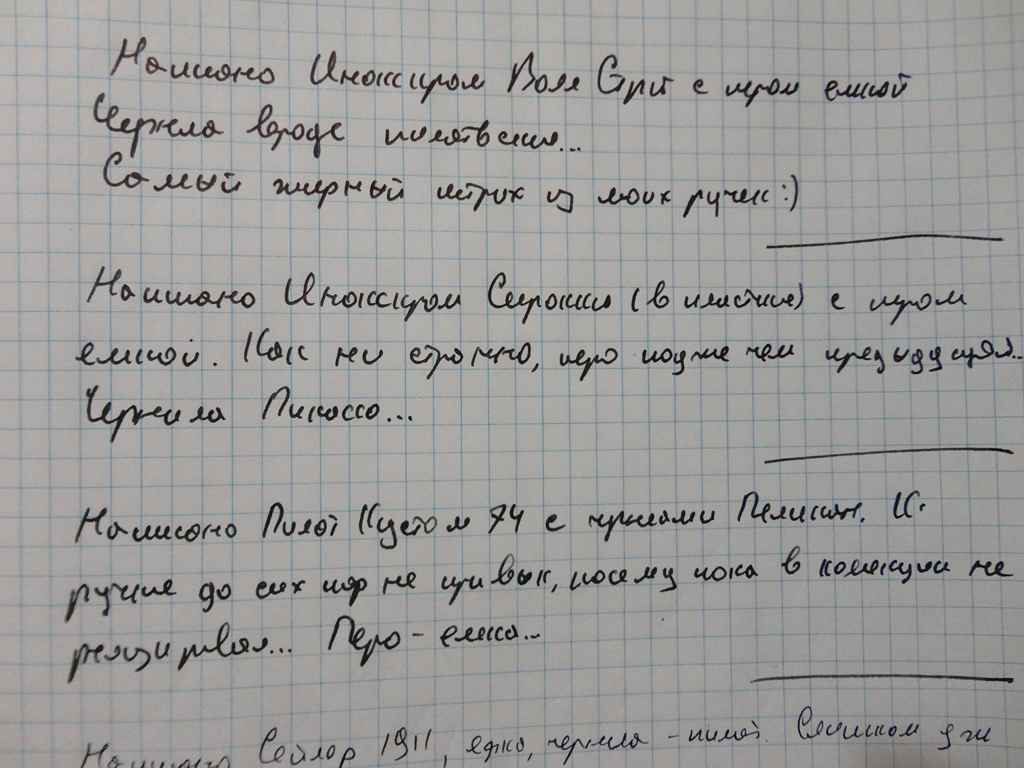 Написано Инокскром Волл Стрит с пером емкой
Чернила вроде
Самый жирный штрих из моих ручек :)
Написано Инокскром (в пластике) с пером
емкой. Как ни странно, перо поуже чем предыдущая...
Чернила Пикассо...
Написано Пилот Кустом 74 с чернилами Пеликан. К
ручке до сих пор не привык, посему пока в коллекции не
Перо - емка...
Написано Сейлор 1911, чернила - пилот. Слишком уж